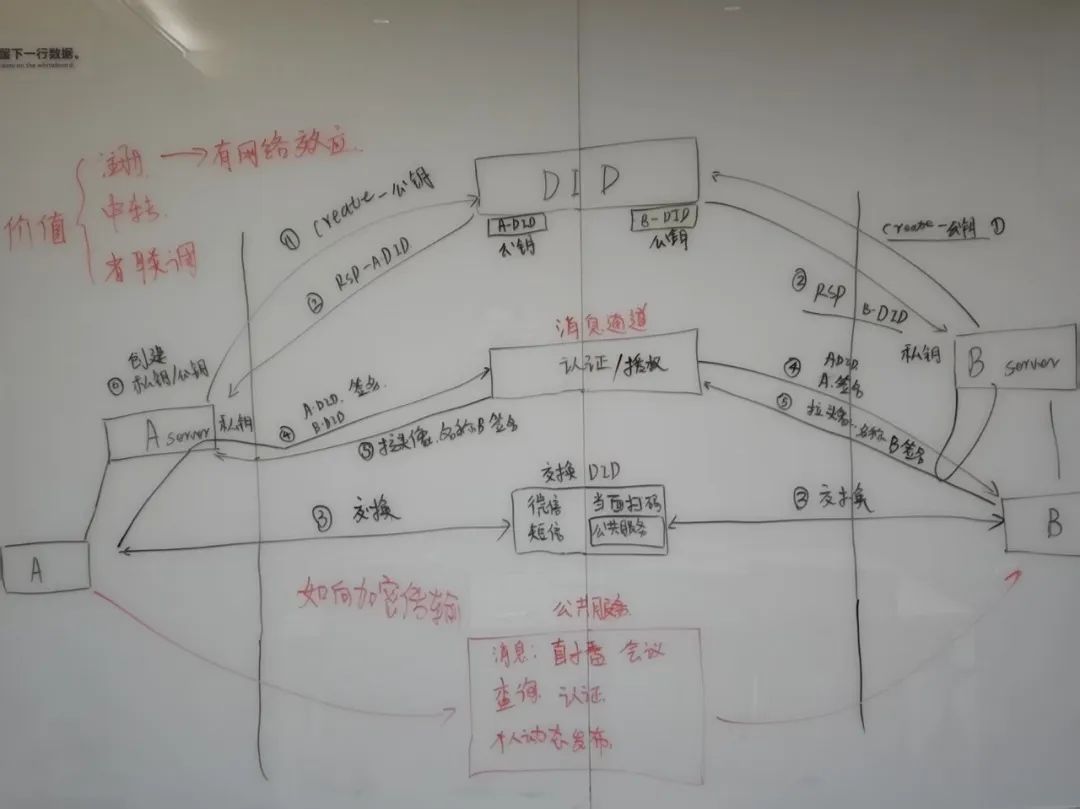 留下一行数据。
data on the whiteboard.
价值
注册 → 有网络效应
中转
省联调
DID
A-DID
公钥
B-DID
公钥
① create-公钥
② RSP-ADID
create-公钥 ①
② RSP B-DID
消息通道
认证/授权
⓪ 创建
私钥/公钥
A server
私钥
④ A.DID. 签名
B.DID
⑤ 拉头像.名称B签名
④ ADID
A.签名
⑤ 拉头像.名称B签名
私钥
B server
交换 DID
微信 当面扫码
短信 公共服务
③ 交换
③ 交换
A
B
如何加密传输
公共服务
消息: 直播 会议
查询 认证
个人动态发布